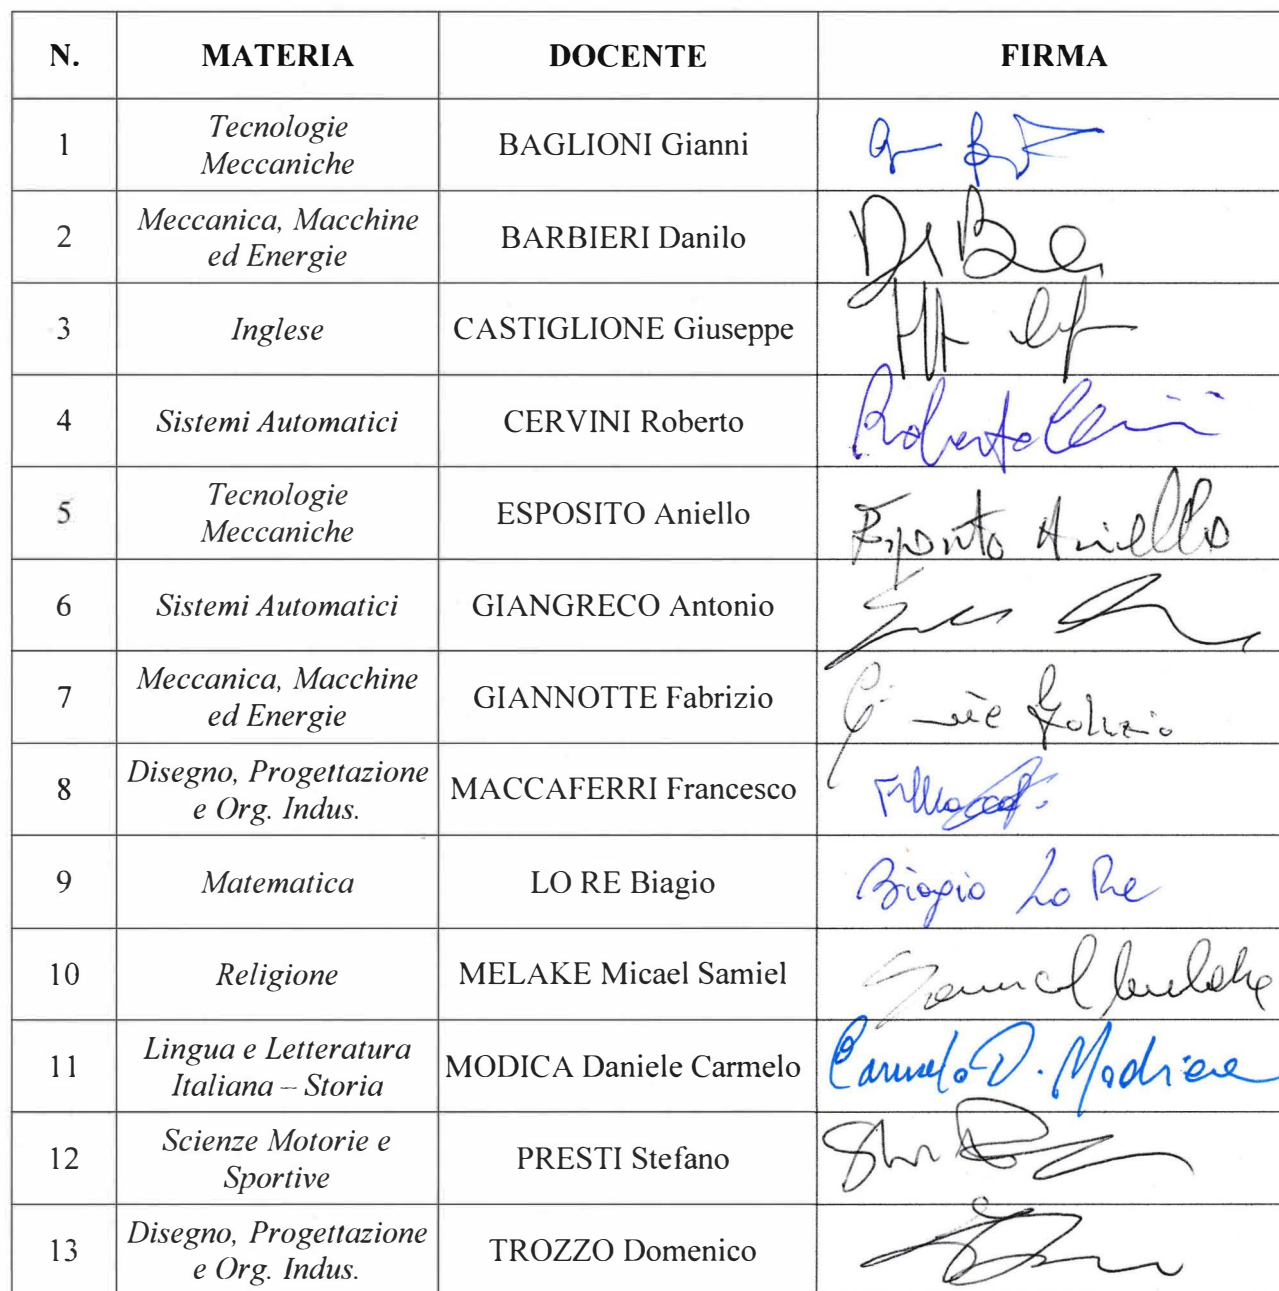 N. MATERIA DOCENTE FIRMA
1 Tecnologie Meccaniche BAGLIONI Gianni
2 Meccanica, Macchine ed Energie BARBIERI Danilo
3 Inglese CASTIGLIONE Giuseppe
4 Sistemi Automatici CERVINI Roberto Roberto Cervini
5 Tecnologie Meccaniche ESPOSITO Aniello Esposito Aniello
6 Sistemi Automatici GIANGRECO Antonio
7 Meccanica, Macchine ed Energie GIANNOTTE Fabrizio
8 Disegno, Progettazione e Org. Indus. MACCAFERRI Francesco
9 Matematica LO RE Biagio Biagio Lo Re
10 Religione MELAKE Micael Samiel
11 Lingua e Letteratura Italiana – Storia MODICA Daniele Carmelo Carmelo D. Modica
12 Scienze Motorie e Sportive PRESTI Stefano
13 Disegno, Progettazione e Org. Indus. TROZZO Domenico